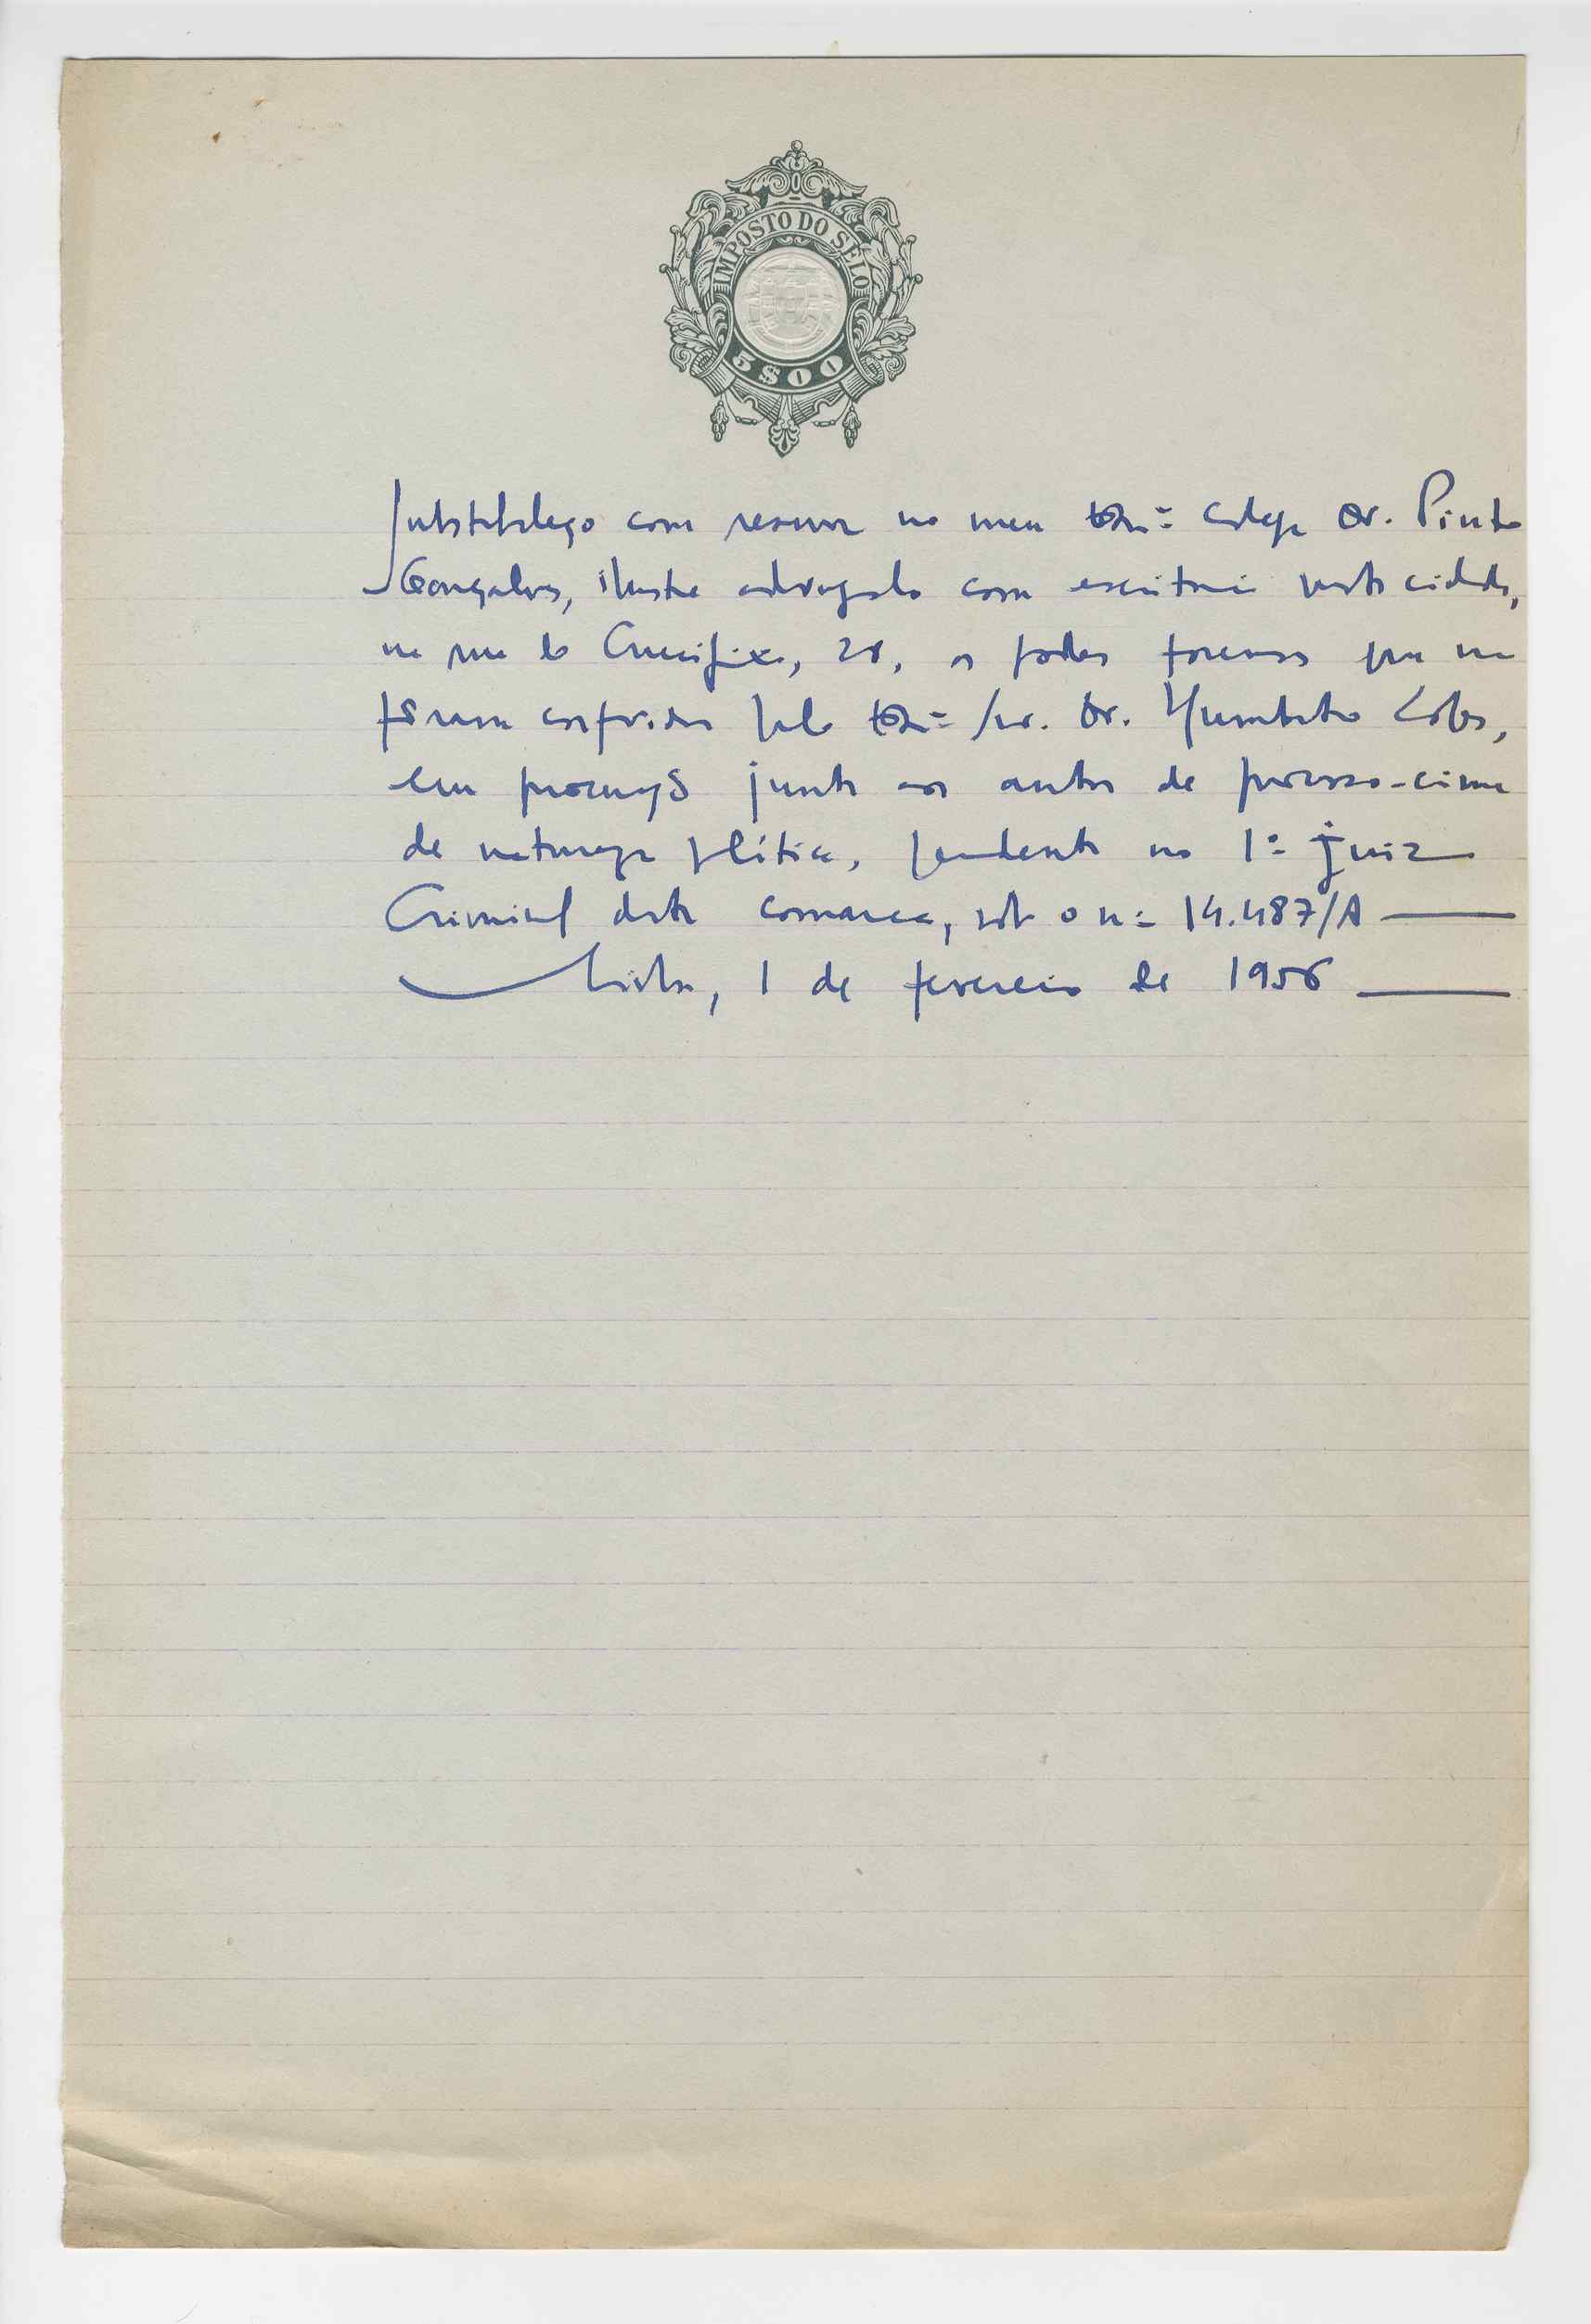 IMPOSTO DO SELO
5$00
Substabeleço com reserva no meu Exmº Colega Dr. Pinto
Gonçalves, ilustre advogado com escritório nesta cidade,
na rua do Crucifixo, 28, os poderes forenses que me
foram conferidos pelo Exmº Snr. Dr. Humberto Lopes,
em procuração junta aos autos de processo-crime
de natureza política, pendente no 1º juizo
Criminal desta comarca, sob o nº 14.487/A
Lisboa, 1 de fevereiro de 1956